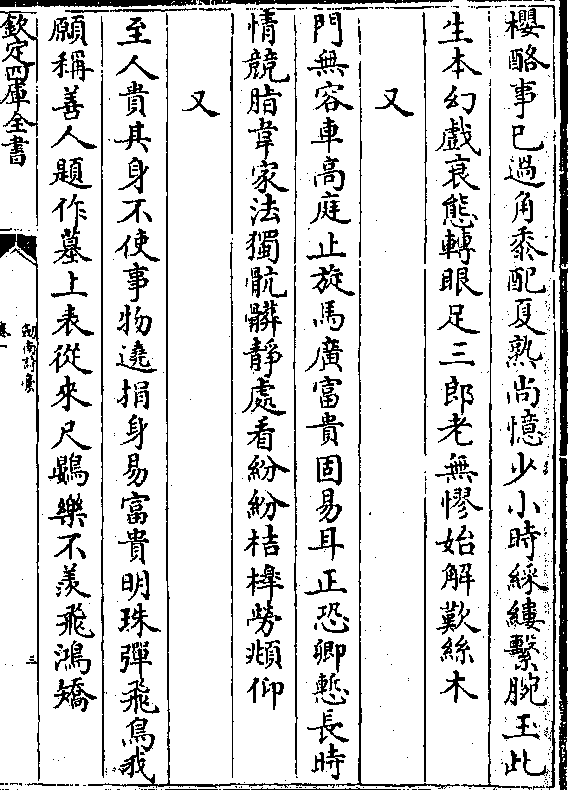 櫻酪事已過角黍配夏熟尚憶少小時綵縷繫腕玉此
生本幻戲哀態轉眼足三郎老無憀始解歎絲木
又
門無容車高庭止旋馬廣富貴固易耳正恐卿慙長時
情競脂韋家法獨骯髒靜處看紛紛桔橰勞頫仰
又
至人貴其身不使事物遶捐身易富貴明珠彈飛鳥我
願稱善人題作墓上表從來尺鷃樂不羨飛鴻矯
欽定四庫全書
卷一
三